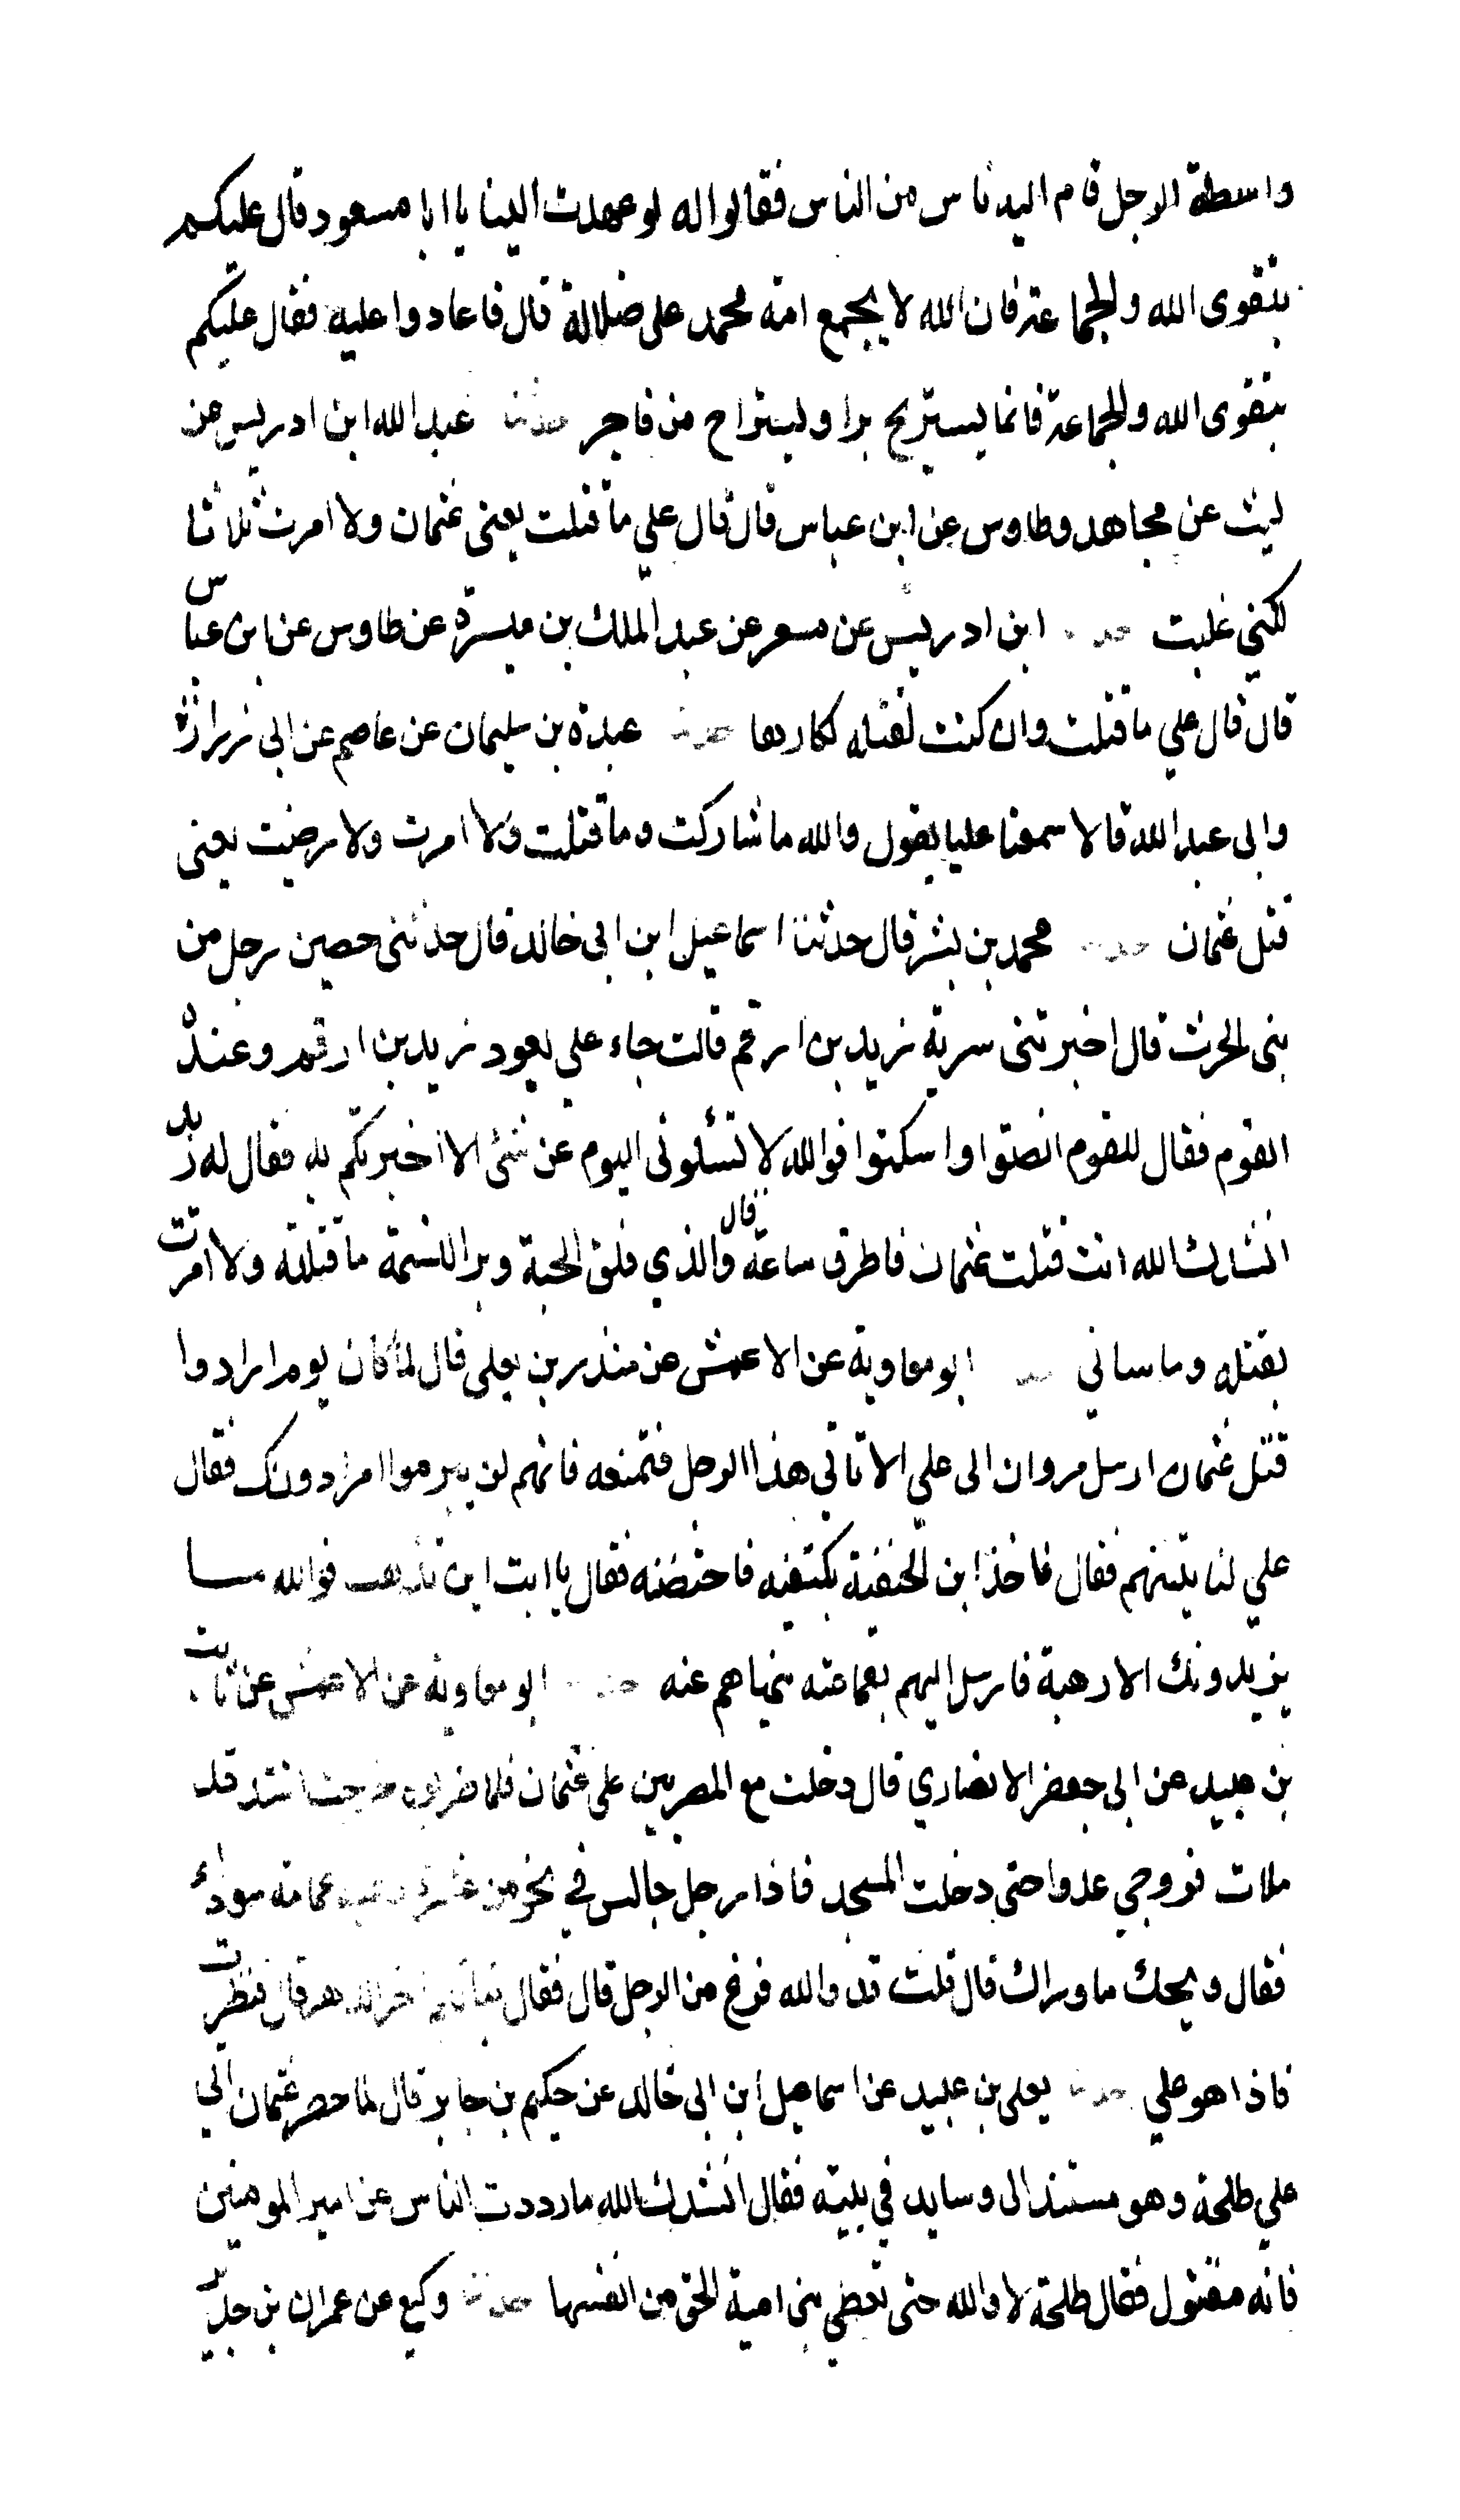 واسطة الرجل قام اليه ناس من الناس فقالوا له لو عهدت الينا يا ابا مسعود قال عليكم
بتقوى الله والجماعة فان الله لا يجمع امة محمد على ضلالة قال فاعادوا عليه فقال عليكم
بتقوى الله والجماعة فانما يستريح برا ويستراح من فاجر حدثنا عبد الله ابن ادريس عن
ليث عن مجاهد وطاوس عن ابن عباس قال قال علي ما قتلت يعنى عثمان ولا امرت ثلاثا
لكني غلبت حدثنا ابن ادريس عن مسعر عن عبد الملك بن ميسرة عن طاوس عن ابن عباس
قال قال علي ما قتلت وان كنت لقتله لكارها حدثنا عبدة بن سليمان عن عاصم عن ابى زرارة
وابى عبد الله قالا سمعنا عليا يقول والله ما شاركت وما قتلت ولا امرت ولا رضيت يعنى
قتل عثمان حدثنا محمد بن بشر قال حدثنا اسماعيل ابن ابى خالد قال حدثنى حصين رجل من
بنى الحرث قال اخبرتنى سرية زيد بن ارقم قالت جاء علي يعود زيد بن ارقم وعنده
القوم فقال للقوم انصتوا واسكتوا فوالله لا تسئلونى اليوم عن شئ الا اخبرتكم به فقال له زيد
انشدك الله انت قتلت عثمان فاطرق ساعة قال والذي فلق الحبة وبرا النسمة ما قتلته ولا امرت
بقتله وما ساني ابو معاوية عن الاعمش عن منذر بن يعلى قال لما كان يوم ارادوا
قتل عثمان ارسل مروان الى علي الا تاتي هذا الرجل فتمنعه فانهم لن يبرموا امرا دونك فقال
علي لناتينهم فقال فاخذ ابن الحنفية بكتفيه فاحتضنه فقال يا ابت اين تذهب فوالله مـــا
يزيدونك الا رهبة فارسل اليهم بعمامته ينهاهم عنه حدثنا ابو معاوية عن الاعمش عن ثابت
بن عبيد عن ابى جعفر الانصاري قال دخلت مع المصريين على عثمان فلما ضربوه خرجت اشتد قد
ملات فروجي عدوا حتى دخلت المسجد فاذا رجل جالس في نحو من عشرة عليه عمامة سوداء
فقال ويحك ما وراك قال قلت قد والله فرغ من الرجل قال فقال تبا لكم اخر الدهر قال فنظرت
فاذا هو علي حدثنا يعلى بن عبيد عن اسماعيل ابن ابى خالد عن حكيم بن جابر قال لما حصر عثمان اتي
علي طلحة وهو مستند الى وسايد في بيته فقال انشدك الله ما رددت الناس عن امير المومنين
فانه مقتول فقال طلحة لا والله حتى تعطي بنى امية الحق من انفسها حدثنا وكيع عن عمران بن حدير